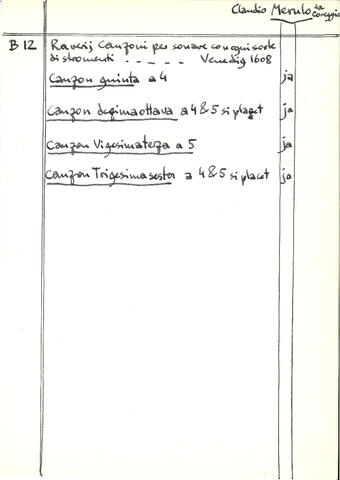 Claudio Merulo da Coregio
B 12 Raverij Canzoni per sonare con ogni sorte
di stromenti . _ _ _ _ Venedig 1608
Canzon quinta a 4 ja
Canzon decimaottava a 4 & 5 si placet ja
Canzon Vigesimaterza a 5 ja
Canzon Trigesimasestor a 4 & 5 si placet ja